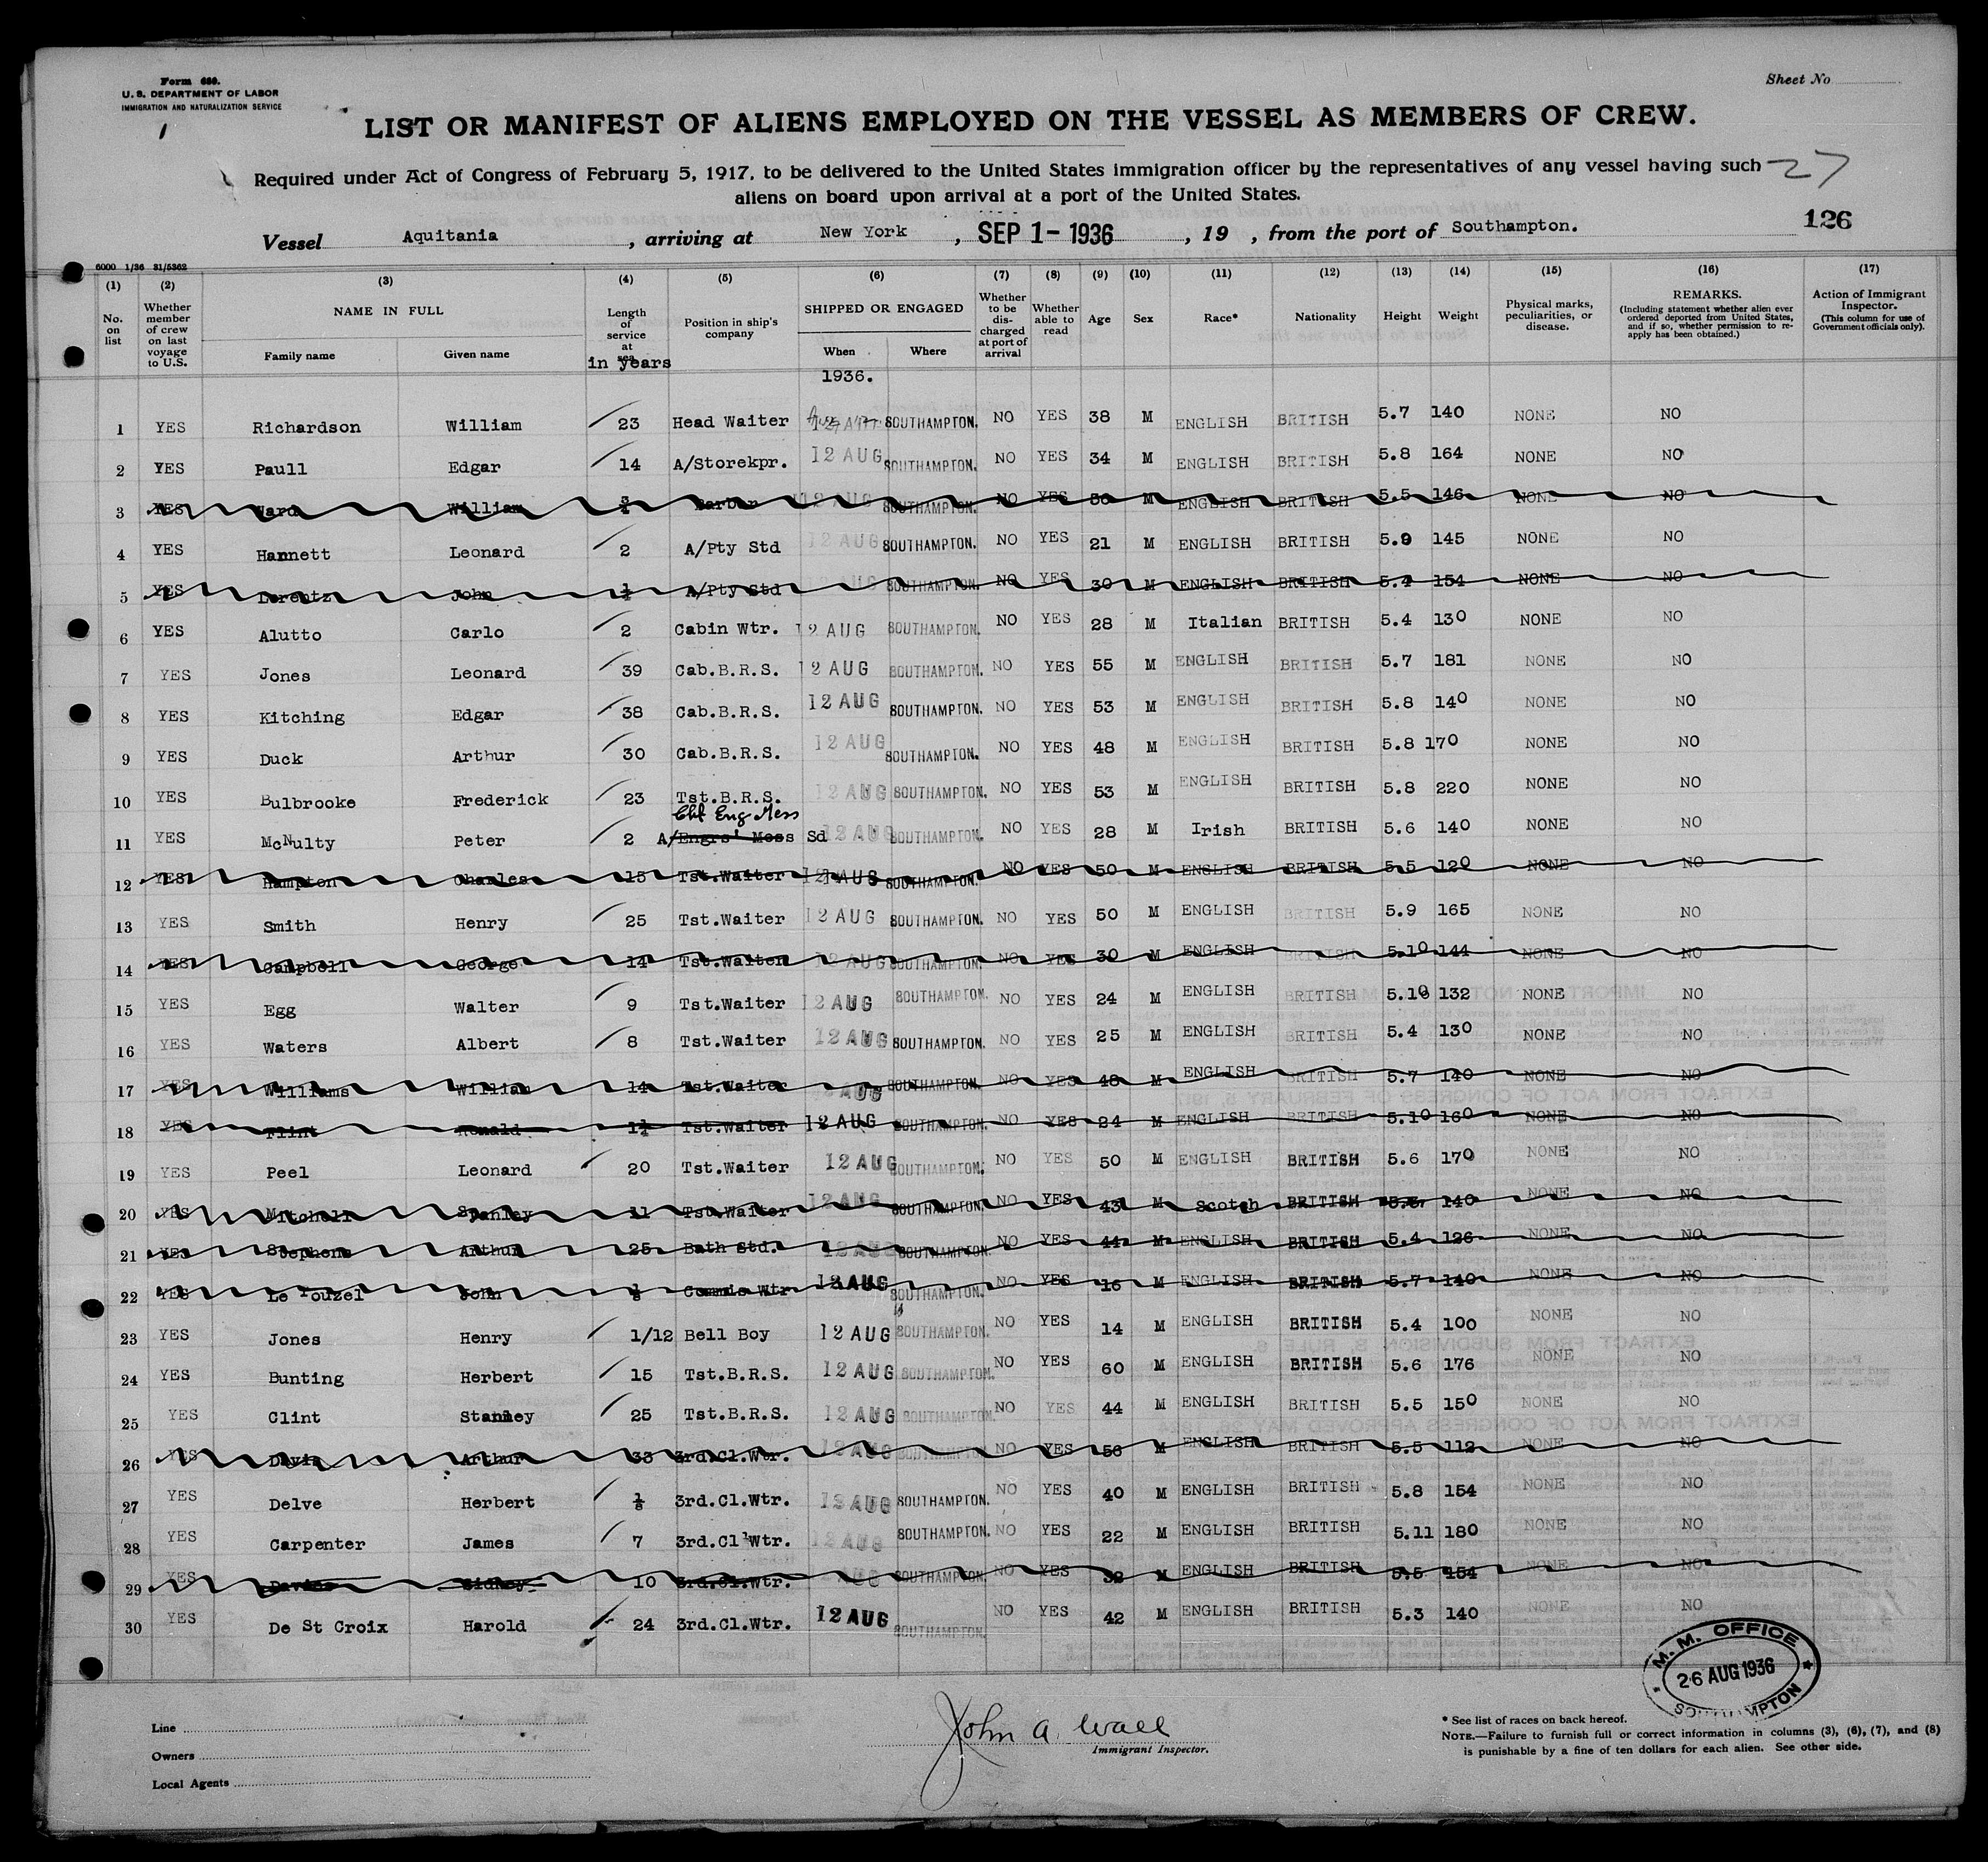 Form 689.
U. S. DEPARTMENT OF LABOR
IMMIGRATION AND NATURALIZATION SERVICE
Sheet No
LIST OR MANIFEST OF ALIENS EMPLOYED ON THE VESSEL AS MEMBERS OF CREW.
Required under Act of Congress of February 5, 1917, to be delivered to the United States immigration officer by the representatives of any vessel having such
27
aliens on board upon arrival at a port of the United States.
Vessel Aquitania , arriving at New York , SEP 1- 1936 , 19 , from the port of Southampton. 126
6000 1/36 31/5362
(1) (2) (3) (4) (5) (6) (7) (8) (9) (10) (11) (12) (13) (14) (15) (16) (17)
No. on list
Whether member of crew on last voyage to U.S.
NAME IN FULL
Family name Given name
Length of service at sea
in years
Position in ship's company
SHIPPED OR ENGAGED
When Where
1936.
Whether to be discharged at port of arrival
Whether able to read
Age Sex Race* Nationality Height Weight
Physical marks, peculiarities, or disease.
REMARKS.
(Including statement whether alien ever ordered deported from United States, and if so, whether permission to re-apply has been obtained.)
Action of Immigrant Inspector.
(This column for use of Government officials only).
1 YES Richardson William 23 Head Waiter SOUTHAMPTON. NO YES 38 M ENGLISH BRITISH 5.7 140 NONE NO
2 YES Paull Edgar 14 A/Storekpr. 12 AUG SOUTHAMPTON. NO YES 34 M ENGLISH BRITISH 5.8 164 NONE NO
3 YES Ward William Barber 12 AUG SOUTHAMPTON. NO YES M ENGLISH BRITISH 5.5 146 NONE NO
4 YES Hannett Leonard 2 A/Pty Std 12 AUG SOUTHAMPTON. NO YES 21 M ENGLISH BRITISH 5.9 145 NONE NO
5 YES Lorentz John A/Pty Std AUG SOUTHAMPTON. NO YES 30 M ENGLISH BRITISH 5.4 154 NONE NO
6 YES Alutto Carlo 2 Cabin Wtr. 12 AUG SOUTHAMPTON. NO YES 28 M Italian BRITISH 5.4 130 NONE NO
7 YES Jones Leonard 39 Cab.B.R.S. 12 AUG SOUTHAMPTON. NO YES 55 M ENGLISH BRITISH 5.7 181 NONE NO
8 YES Kitching Edgar 38 Cab.B.R.S. 12 AUG SOUTHAMPTON. NO YES 53 M ENGLISH BRITISH 5.8 140 NONE NO
9 YES Duck Arthur 30 Cab.B.R.S. 12 AUG SOUTHAMPTON. NO YES 48 M ENGLISH BRITISH 5.8 170 NONE NO
10 YES Bulbrooke Frederick 23 Tst.B.R.S. 12 AUG SOUTHAMPTON. NO YES 53 M ENGLISH BRITISH 5.8 220 NONE NO
Eng Mess
11 YES McNulty Peter 2 A/Engrs' Mess Sd 12 AUG SOUTHAMPTON. NO YES 28 M Irish BRITISH 5.6 140 NONE NO
12 YES Hampton Charles 15 Tst.Waiter 12 AUG SOUTHAMPTON. NO YES 50 M ENGLISH BRITISH 5.5 120 NONE NO
13 YES Smith Henry 25 Tst.Waiter 12 AUG SOUTHAMPTON. NO YES 50 M ENGLISH BRITISH 5.9 165 NONE NO
14 YES Campbell George 14 Tst.Waiter 12 AUG SOUTHAMPTON. NO YES 30 M ENGLISH BRITISH 5.10 144 NONE NO
15 YES Egg Walter 9 Tst.Waiter 12 AUG SOUTHAMPTON. NO YES 24 M ENGLISH BRITISH 5.10 132 NONE NO
16 YES Waters Albert 8 Tst.Waiter 12 AUG SOUTHAMPTON. NO YES 25 M ENGLISH BRITISH 5.4 130 NONE NO
17 YES Williams William 14 Tst.Waiter AUG SOUTHAMPTON. NO YES 48 M ENGLISH BRITISH 5.7 140 NONE NO
18 YES Flint Ronald 1¼ Tst.Waiter 12 AUG SOUTHAMPTON. NO YES 24 M ENGLISH BRITISH 5.10 160 NONE NO
19 YES Peel Leonard 20 Tst.Waiter 12 AUG SOUTHAMPTON. NO YES 50 M ENGLISH BRITISH 5.6 170 NONE NO
20 YES Mitchell Stanley 11 Tst.Waiter 12 AUG SOUTHAMPTON. NO YES 43 M Scotch BRITISH 140 NONE NO
21 YES Stephens Arthur 25 Bath Std. 12 AUG SOUTHAMPTON NO YES 44 M ENGLISH BRITISH 5.4 126 NONE NO
22 YES Le Touzel John Commis Wtr 12 AUG SOUTHAMPTON. NO YES 16 M ENGLISH BRITISH 5.7 140 NONE NO
23 YES Jones Henry 1/12 Bell Boy 12 AUG SOUTHAMPTON. NO YES 14 M ENGLISH BRITISH 5.4 100 NONE NO
24 YES Bunting Herbert 15 Tst.B.R.S. 12 AUG SOUTHAMPTON. NO YES 60 M ENGLISH BRITISH 5.6 176 NONE NO
25 YES Clint Stanley 25 Tst.B.R.S. 12 AUG SOUTHAMPTON. NO YES 44 M ENGLISH BRITISH 5.5 150 NONE NO
26 YES Davis Arthur 33 3rd.Cl.Wtr. 12 AUG SOUTHAMPTON NO YES 56 M ENGLISH BRITISH 5.5 112 NONE NO
27 YES Delve Herbert 3rd.Cl.Wtr. 12 AUG SOUTHAMPTON. NO YES 40 M ENGLISH BRITISH 5.8 154 NONE NO
28 YES Carpenter James 7 3rd.Cl Wtr. 12 AUG SOUTHAMPTON. NO YES 22 M ENGLISH BRITISH 5.11 180 NONE NO
29 YES Davies Sidney 10 3rd.Cl.Wtr. AUG SOUTHAMPTON. NO YES 38 M ENGLISH BRITISH 5.5 154 NONE NO
30 YES De St Croix Harold 24 3rd.Cl.Wtr. 12 AUG SOUTHAMPTON. NO YES 42 M ENGLISH BRITISH 5.3 140 NONE NO
M. M. OFFICE
26 AUG 1936
SOUTHAMPTON
Line
Owners
Local Agents
John A Wall
Immigrant Inspector.
* See list of races on back hereof.
NOTE.—Failure to furnish full or correct information in columns (3), (6), (7), and (8)
is punishable by a fine of ten dollars for each alien. See other side.